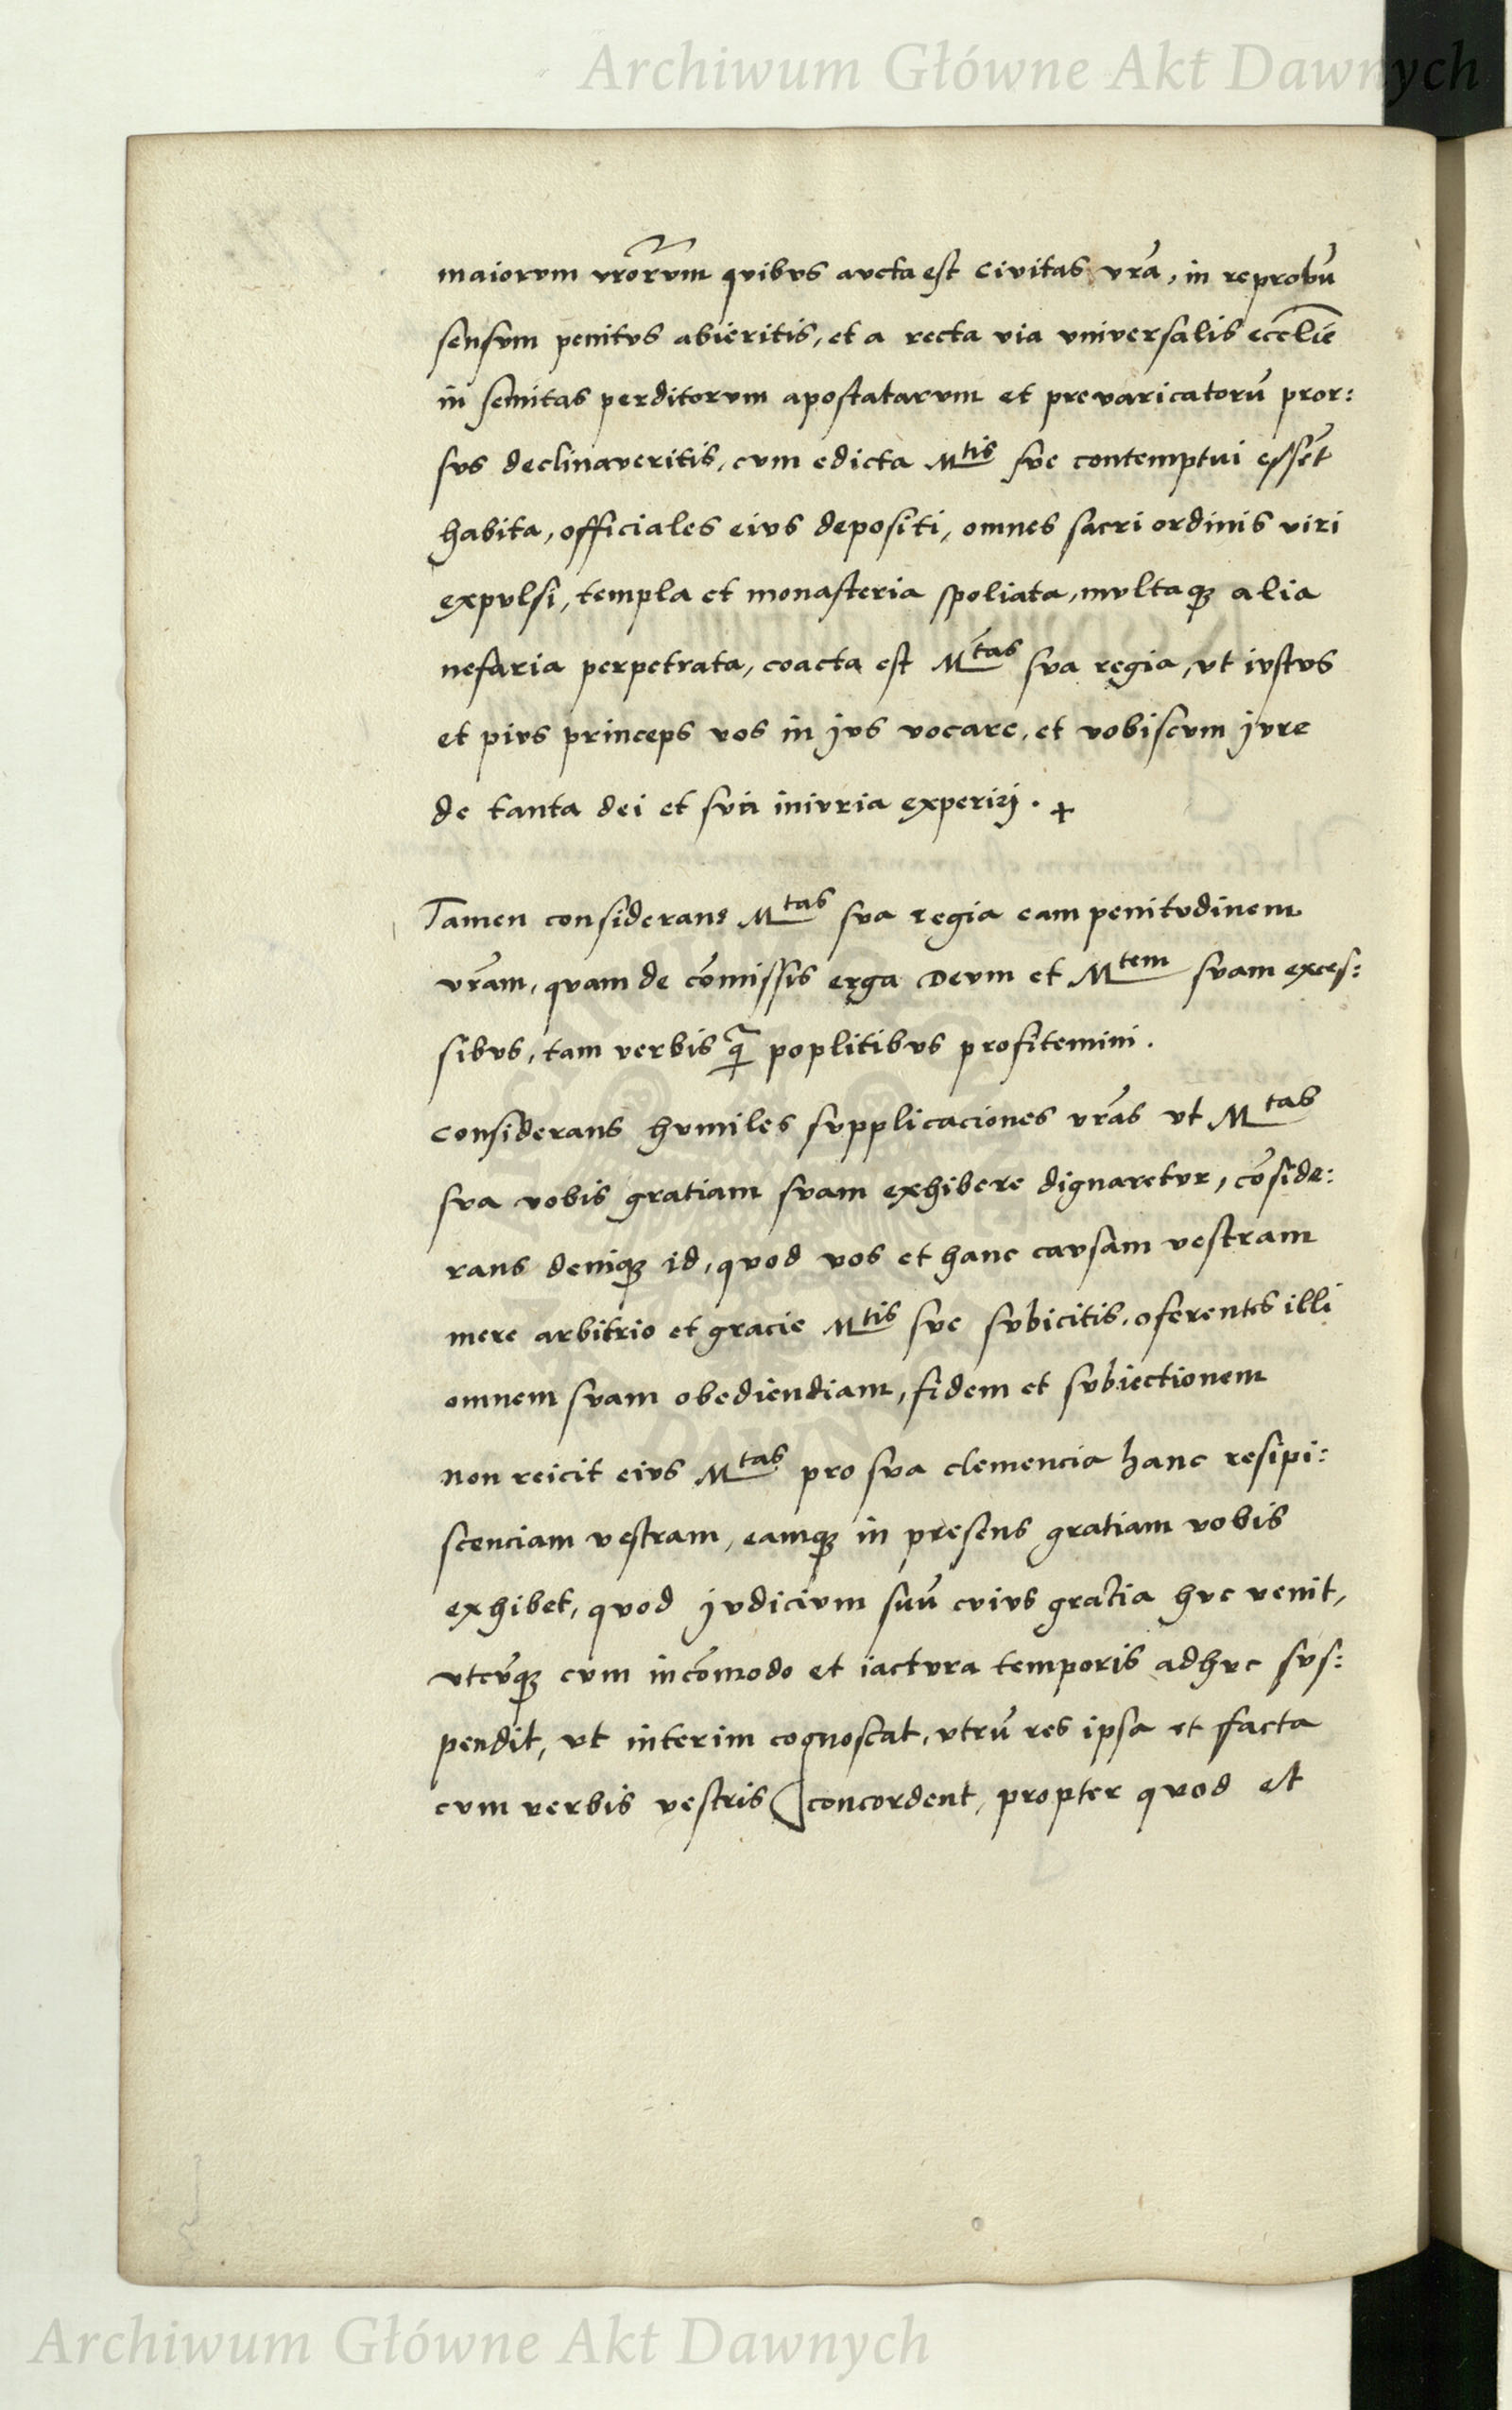 Archiwum Główne Akt Dawnych
maiorvm vrõrvm qvibvs avcta est civitas vrã, in reprobũ
sensvm penitvs abieritis, et a recta via vniversalis eccľie
in semitas perditorvm apostatarvm et prevaricatorũ pror:
svs declinaveritis, cvm edicta Mtis sve contemptvi essẽt
habita, officiales eivs depositi, omnes sacri ordinis viri
expvlsi, templa et monasteria spoliata, mvltaqꝫ alia
nefaria perpetrata, coacta est Mtas sva regia, vt ivstvs
et pivs princeps vos in jvs vocare, et vobiscvm jvre
de tanta dei et svi inivria experirj. +
Tamen considerans Mtas sva regia eam penitvdinem
vrãm, qvam de cõmissis erga Devm et Mtem svam exces:
sibvs, tam verbis q̃ poplitibvs profitemini.
considerans hvmiles svpplicaciones vrãs vt Mtas
sva vobis gratiam svam exhibere dignaretvr, cõside:
rans deniqꝫ id, qvod vos et hanc cavsam vestram
mere arbitrio et gracie Mtis sve svbicitis, oferentes illi
omnem svam obedienciam, fidem et svbiectionem
non reicit eivs Mtas pro sva clemencia hanc resipi:
scenciam vestram, eamqꝫ in presens gratiam vobis
exhibet, qvod jvdicivm suũ cvivs gratia hvc venit,
vtcṽqꝫ cvm incõmodo et iactvra temporis adhvc svs:
pendit, vt interim cognoscat, vtrũ res ipsa et facta
cvm verbis vestris concordent, propter qvod et
Archiwum Główne Akt Dawnych